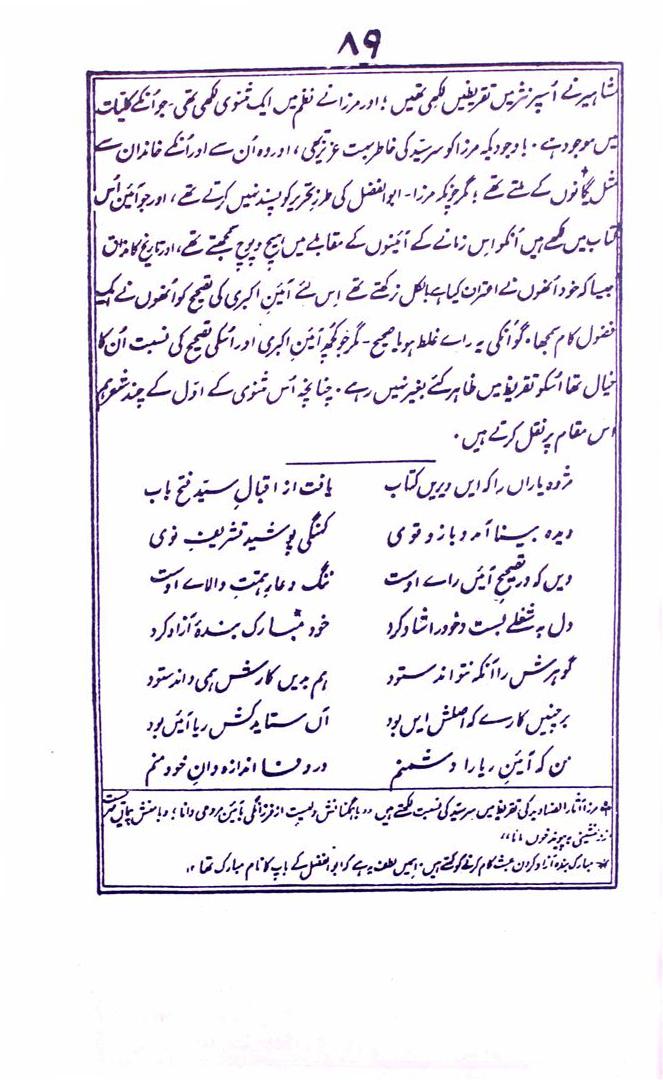 ۸۹
مشاہیر نے اُسپر نثر میں تقریظیں لکھی تھیں؛ اور مرزا نے نظم میں ایک مثنوی لکھی تھی۔ جو اُنکے کلیات
میں موجود ہے۔ باوجودیکہ مرزا کو سرسیّد کی خاطر بہت عزیز تھی، اور وہ اُن سے اور اُنکے خاندان سے
مثل یگانوں کے ملتے تھے؛ مگر چونکہ مرزا۔ ابوالفضل کی طرزِ تحریر کو پسند نہیں کرتے تھے، اور جو آئین اُس
کتاب میں لکھے ہیں اُنکو اِس زمانے کے آئینوں کے مقابلے میں ہیچ و پوچ سمجھتے تھے، اور تاریخ کا مذاق
جیسا کہ خود اُنھوں نے اعتراف کیا ہے بالکل نہ رکھتے تھے اِس لئے آئین اکبری کی تصحیح کو اُنھوں نے ایک
فضول کام سمجھا۔ گو اُنکی یہ راے غلط ہو یا صحیح۔ مگر جو کچھ آئین اکبری اور اُسکی تصحیح کی نسبت اُن کا
خیال تھا اُسکو تقریظ میں ظاہر کئے بغیر نہیں رہے۔ چنانچہ اُس مثنوی کے اوّل کے چند شعر ہم
اس مقام پر نقل کرتے ہیں۔
مژدہ یاراں را کہ ایں دیریں کتاب یافت از اقبالِ سیّد فتح باب
دیدہ بینا آمد و بازو قوی کہنگی پوشید تشریفِ نوی
ویں کہ در تصحیحِ آئیں راے اوست ننگ و عارِ ہمّتِ والاے اوست
دل بہ شغلے بست و خود را شاد کرد خود مبارک بندۂ آزاد کرد
گوہرش را آنکہ نتواند ستود ہم بدیں کارش ہمی داند ستود
بر چنیں کارے کہ اصلش ایں بود آں ستاید کش ریا آئیں بود
من کہ آئینِ ریا را دشمنم در وفا اندازہ دانِ خود منم
مرزا آثار الصنادید کی تقریظ میں سرسیّد کی نسبت لکھتے ہیں
مبارک بندہ آزاد کردن عبث کام کرنے کو کہتے ہیں۔ اسمیں لطف یہ ہے کہ ابوالفضل کے باپ کا نام مبارک تھا ۱۲